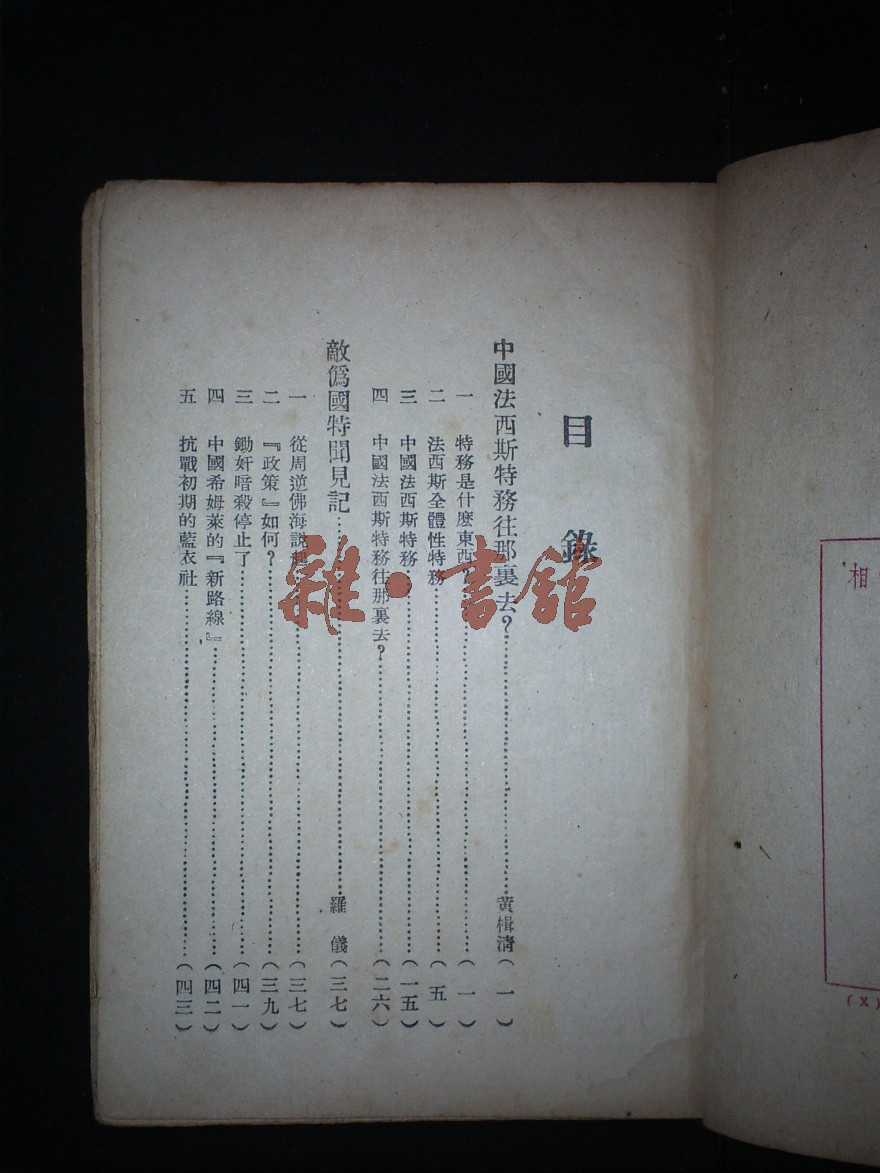 目錄
中國法西斯特務往那裏去？……黃楫清（一）
一 特務是什麼東西？……（一）
二 法西斯全體性特務……（五）
三 中國法西斯特務……（一五）
四 中國法西斯特務往那裏去？……（二六）
敵僞國特聞見記……羅儀（三七）
一 從周逆佛海說起……（三七）
二 『政策』如何？……（三九）
三 鋤奸暗殺停止了……（四一）
四 中國希姆萊的『新路線』……（四二）
五 抗戰初期的藍衣社……（四三）
雜·書館
相
（X）